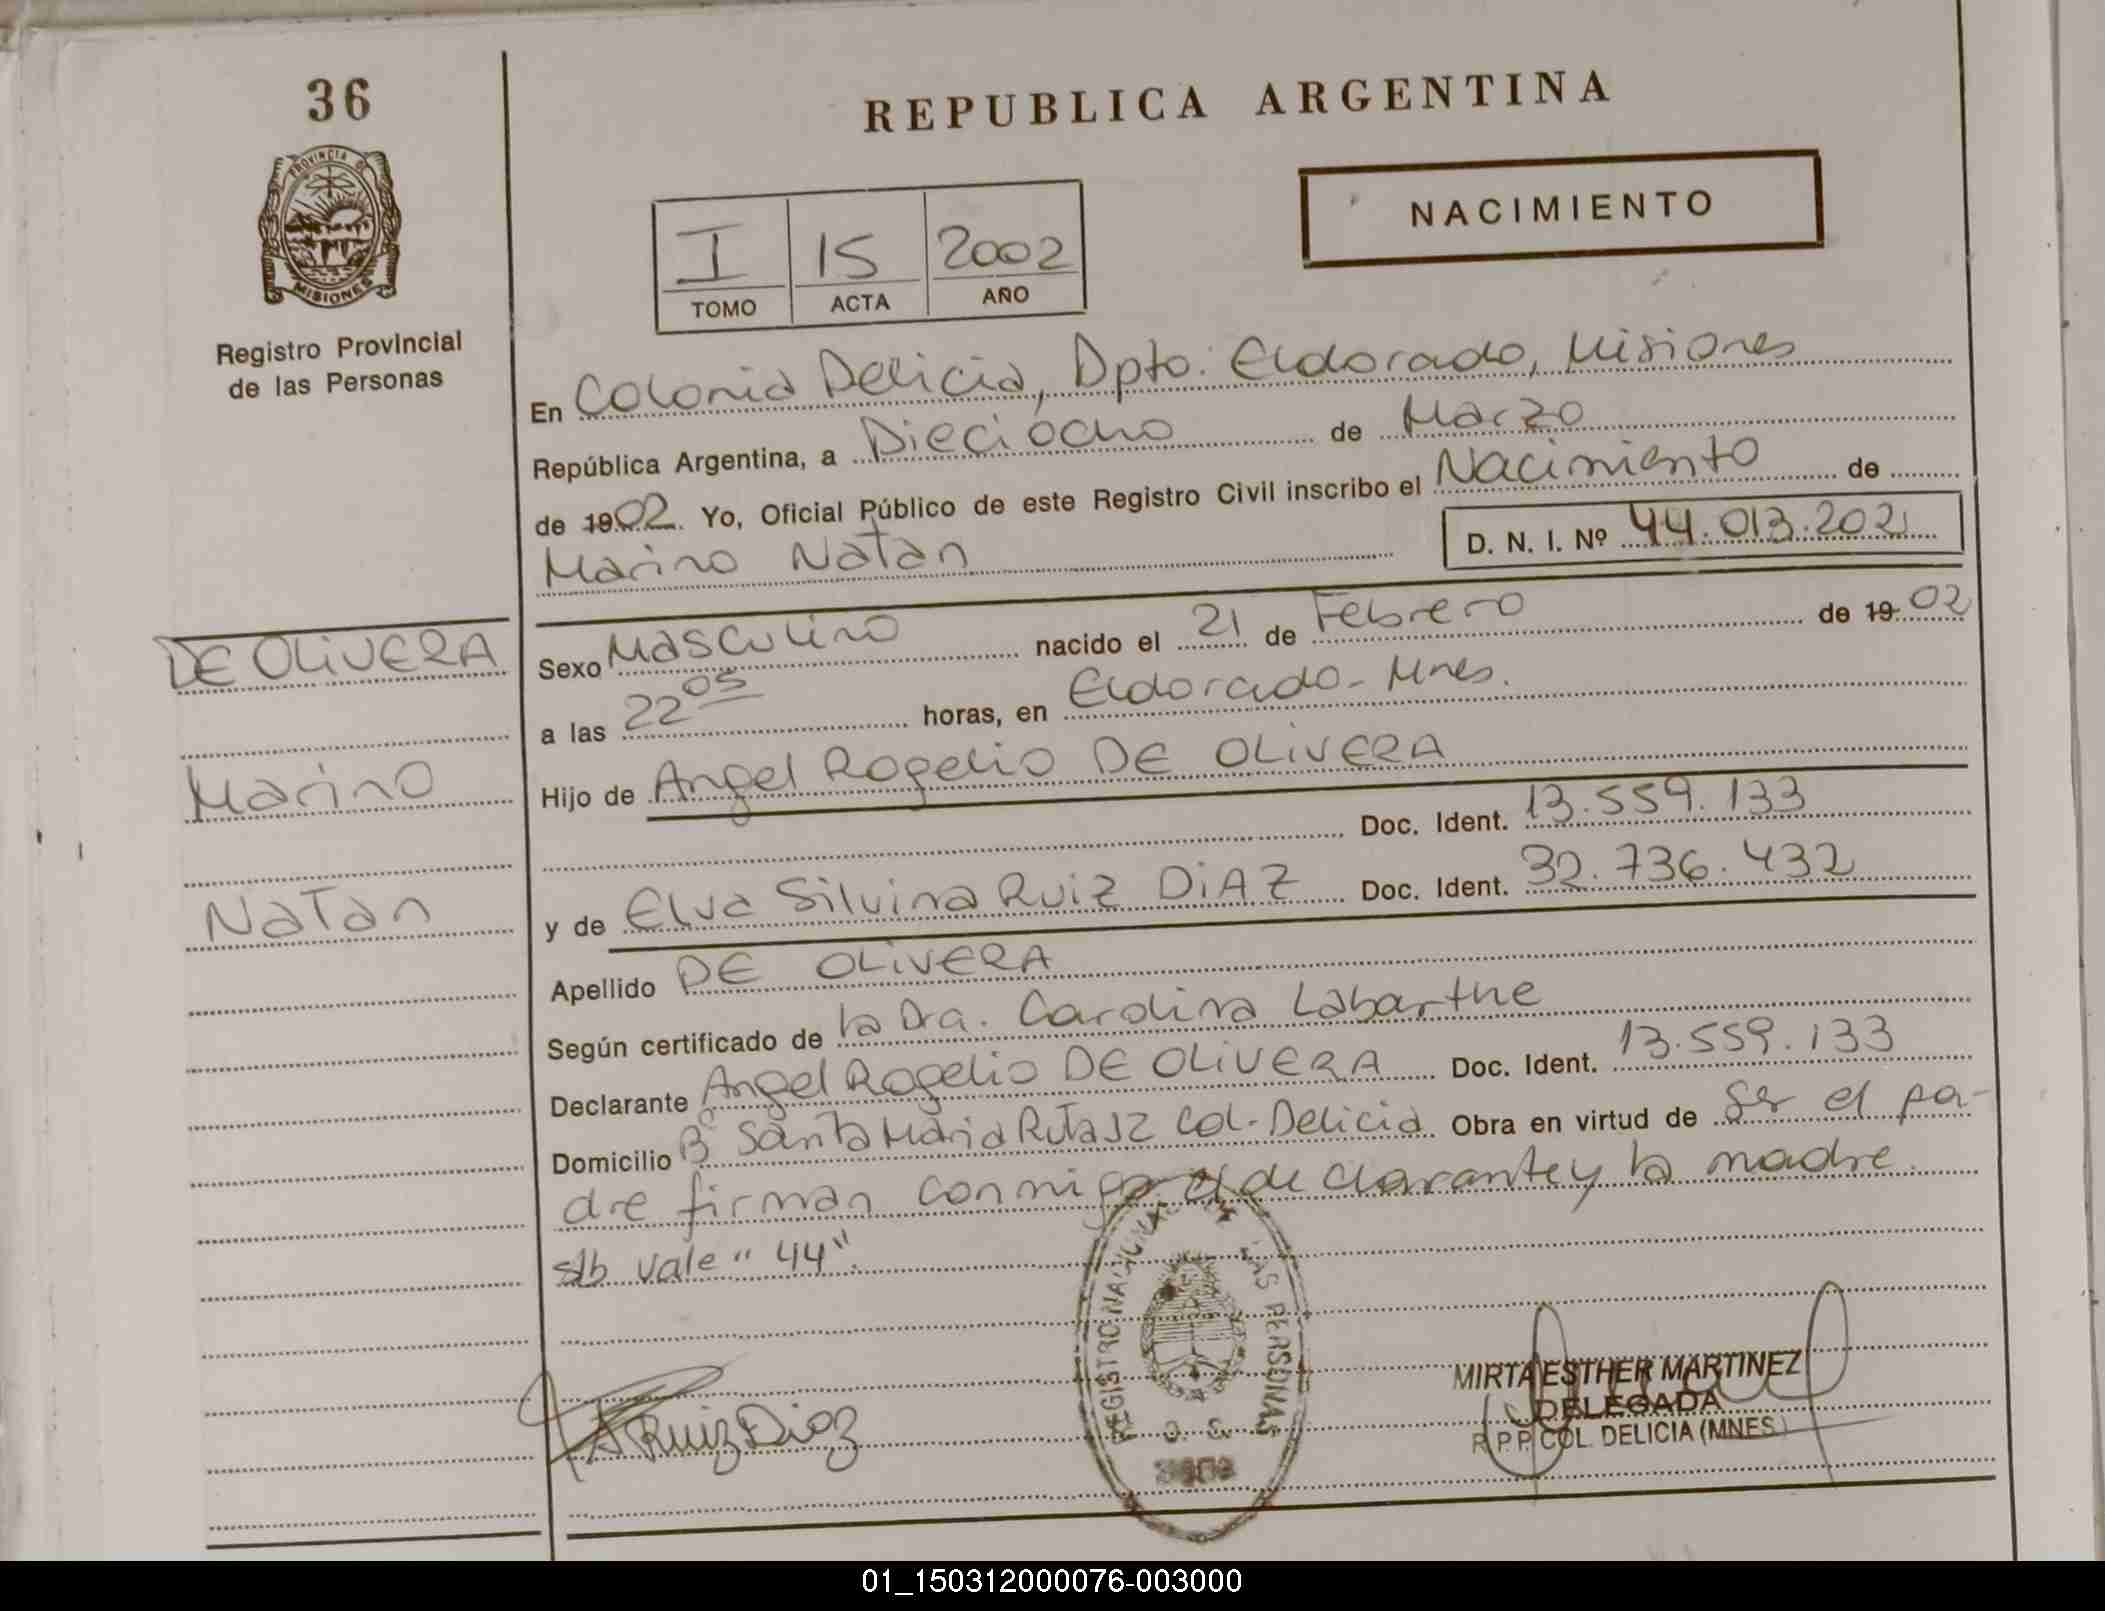 36
REPUBLICA ARGENTINA
PROVINCIA DE
MISIONES
Registro Provincial
de las Personas
NACIMIENTO
I 15 2002
TOMO ACTA AÑO
En Colonia Delicia, Dpto. Eldorado, Misiones
República Argentina, a Dieciocho de Marzo
de 1902. Yo, Oficial Público de este Registro Civil inscribo el Nacimiento de
Marino Natan D. N. I. Nº 44.013.202
DE OLIVERA
Marino
Natan
Sexo Masculino nacido el 21 de Febrero de 19 02
a las 22 05 horas, en Eldorado - Mnes.
Hijo de Angel Rogelio DE OLIVERA
Doc. Ident. 13.559.133
y de Elva Silvina Ruiz DiAZ Doc. Ident. 32.736.432
Apellido DE OLIVERA
Según certificado de la Dra. Carolina Labarthe
Declarante Angel Rogelio DE OLIVERA Doc. Ident. 13.559.133
Domicilio Bº Santa Maria Ruta 12 Col. Delicia Obra en virtud de Ser el pa-
dre firman conmigo el declarante y la madre.
s/b vale "44".
REGISTRO NACIONAL LAS PERSONAS
Ruiz Diaz
MIRTA ESTHER MARTINEZ
DELEGADA
R.P.P. COL. DELICIA (MNES.)
01_150312000076-003000